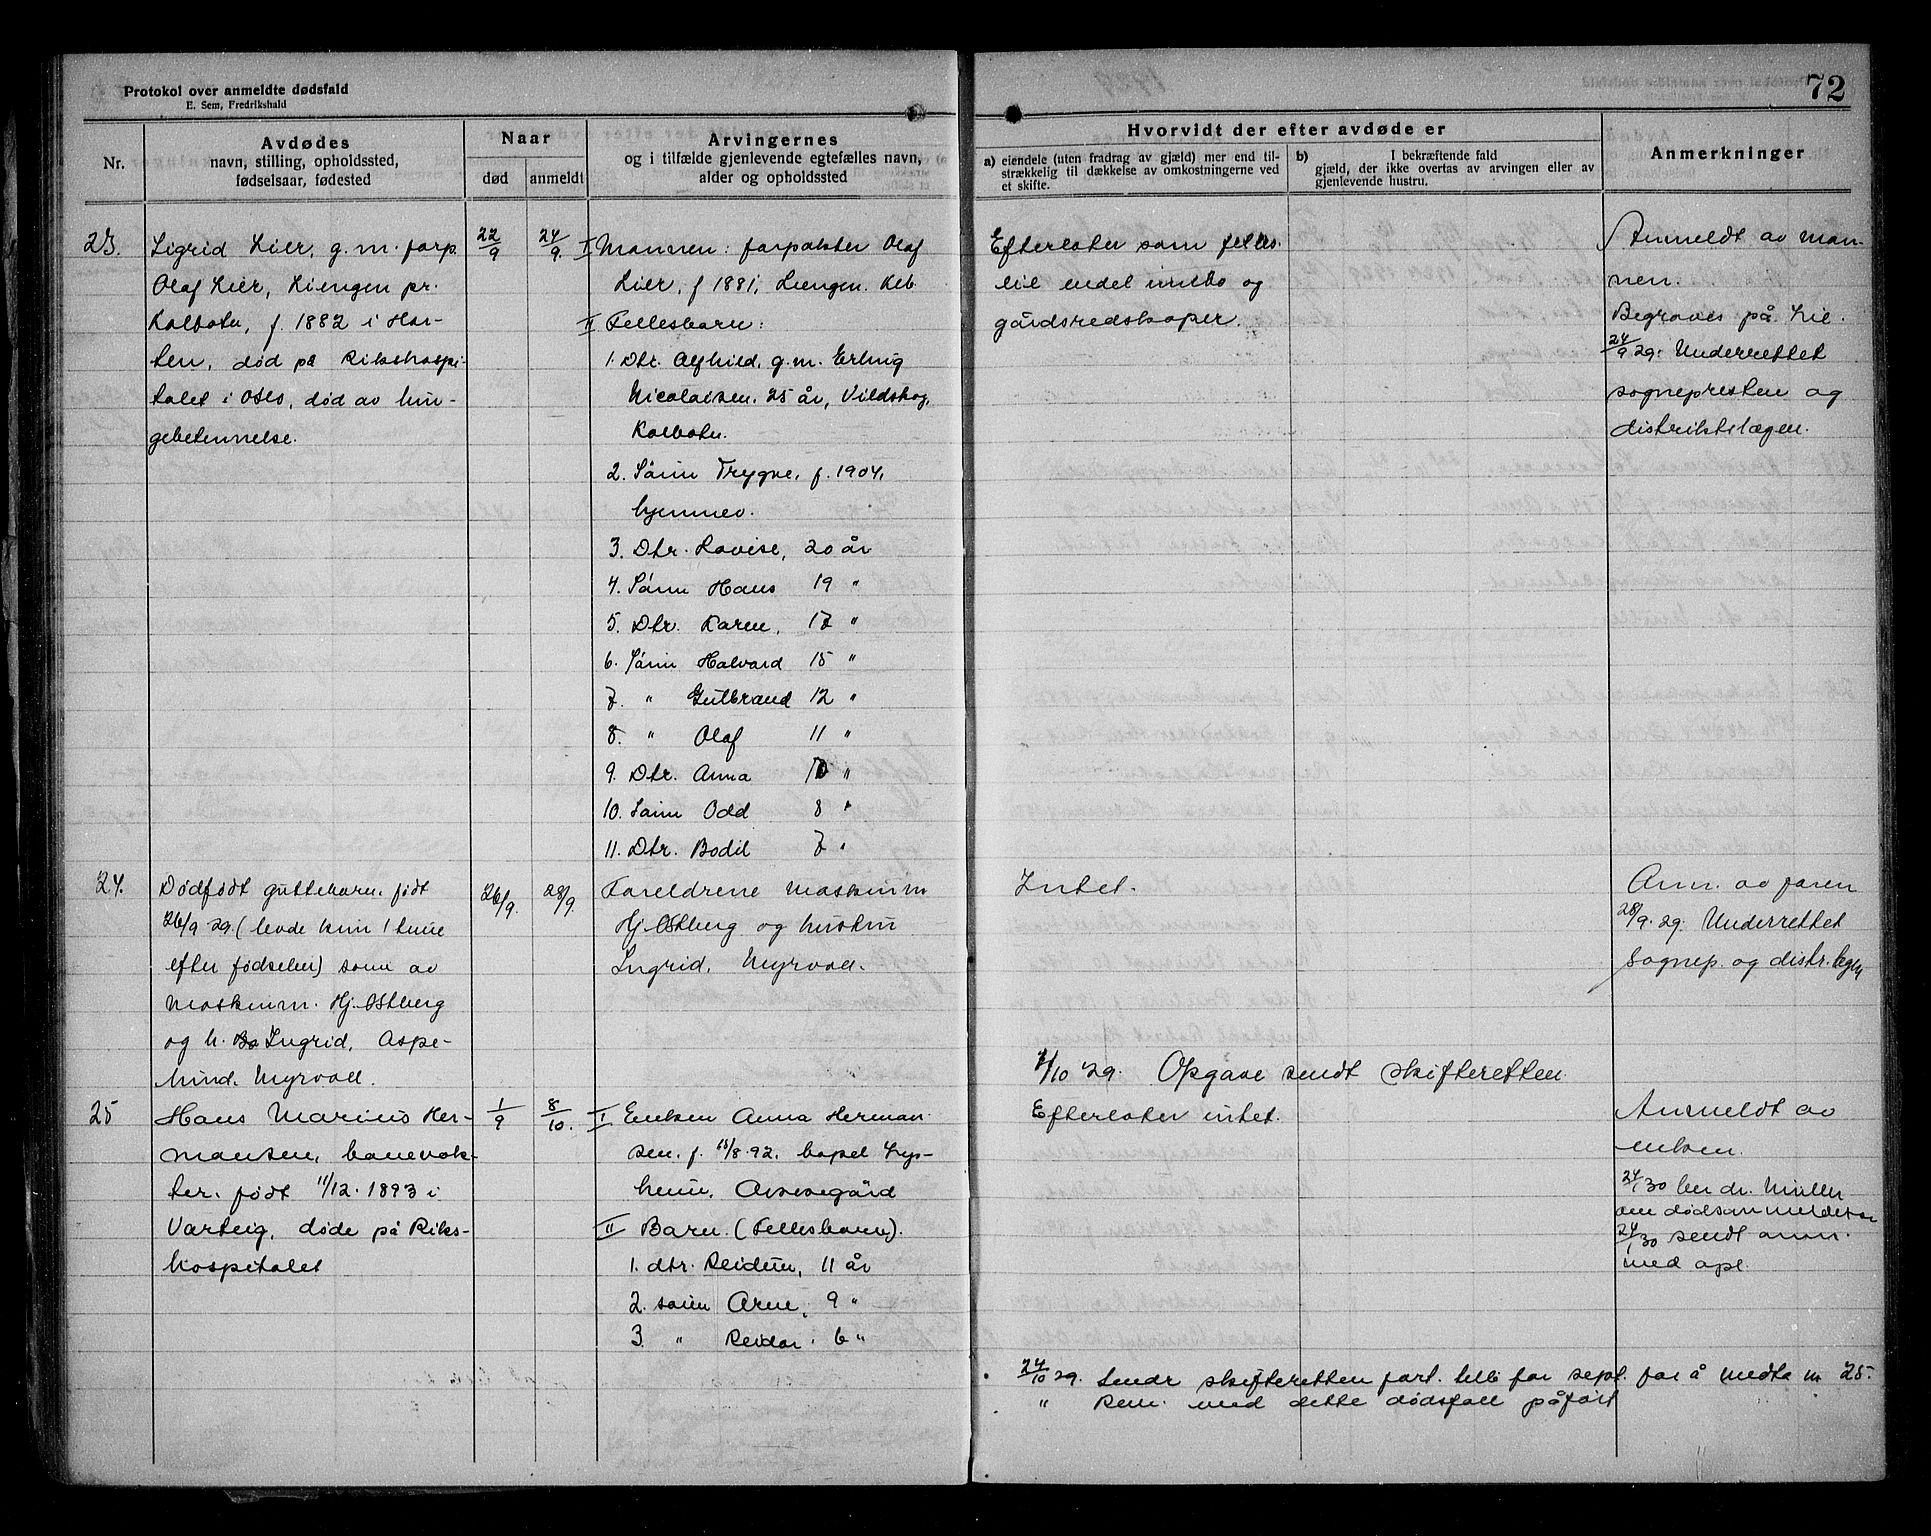 Protokol over anmeldte dødsfald
E. Sem, Fredrikshald
72
Nr.
Avdødes
navn, stilling, opholdssted,
fødselsaar, fødested
Naar
død
anmeldt
Arvingernes
og i tilfælde gjenlevende egtefælles navn,
alder og opholdssted
Hvorvidt der efter avdøde er
a) eiendele (uten fradrag av gjæld) mer end til-
strækkelig til dækkelse av omkostningerne ved
et skifte.
b) I bekræftende fald
gjæld, der ikke overtas av arvingen eller av
gjenlevende hustru.
Anmerkninger
23.
Sigrid Lier, g.m. forp.
Olaf Lier, Liengen pr.
Kolbotn, f. 1882 i Hol-
ten, død på Rikshospi-
talet i Oslo, død av lun-
gebetennelse.
22/9
24/9.
I Mannen: forpakter Olaf
Lier, f 1881, Liengen. Kolb
II Fellesbarn:
1. Dtr. Alfhild, g.m. Erling
Nicolaisen. 25 år, Vildskog,
Kolbotn.
2. Sønn Trygve, f. 1904,
hjemmev.
3. Dtr. Lovise, 20 år
4. Sønn Hans 19 "
5. Dtr. Karen, 17 "
6. Sønn Halvard 15 "
7. " Gulbrand 12 "
8. " Olaf 11 "
9. Dtr. Anna 10 "
10. Sønn Odd 8 "
11. Dtr. Bodil 7 "
Efterlater som felles-
eie endel innbo og
gårdsredskaper.
Anmeldt av man-
nen.
Begraves på
24/9 29. Underrettet
sognepresten og
distriktslægen.
24.
Dødfødt guttebarn. født
26/9 29. (levde kun 1 time
efter fødselen) sønn av
maskinm. Hj. Østberg
og h. Ingrid, Aspe-
lund. Myrvoll.
26/9.
28/9.
Foreldrene maskinm
Hj. Østberg og hustru
Ingrid, Myrvoll.
Intet.
Anm. av faren
28/9. 29. Underrettet
Sognep. og distr.legen
1/10 '29. Opgave sendt skifteretten.
25
Hans Marius Her-
mansen, banevok-
ter. født 11/12. 1893 i
Varteig, døde på Riks-
hospitalet
1/9
8/10.
I Enken Anna Herman-
sen. f. 18/8.92. bopel Lys-
heim, Oppegård
II Barn. (Fellesbarn).
1. dtr. Reidun, 11 år
2. sønn Arne, 9 "
3. " Reidar. 6 "
Efterlater intet.
Anmeldt av
enken.
24/1 30 ber dr. Müller
om dødsanmeldelse
24/1 30 sendt anm.
med opl.
24/10 29. Sendt skifteretten fort. till. for sept. for å medta nr 25.
" med dette dødsfall påført